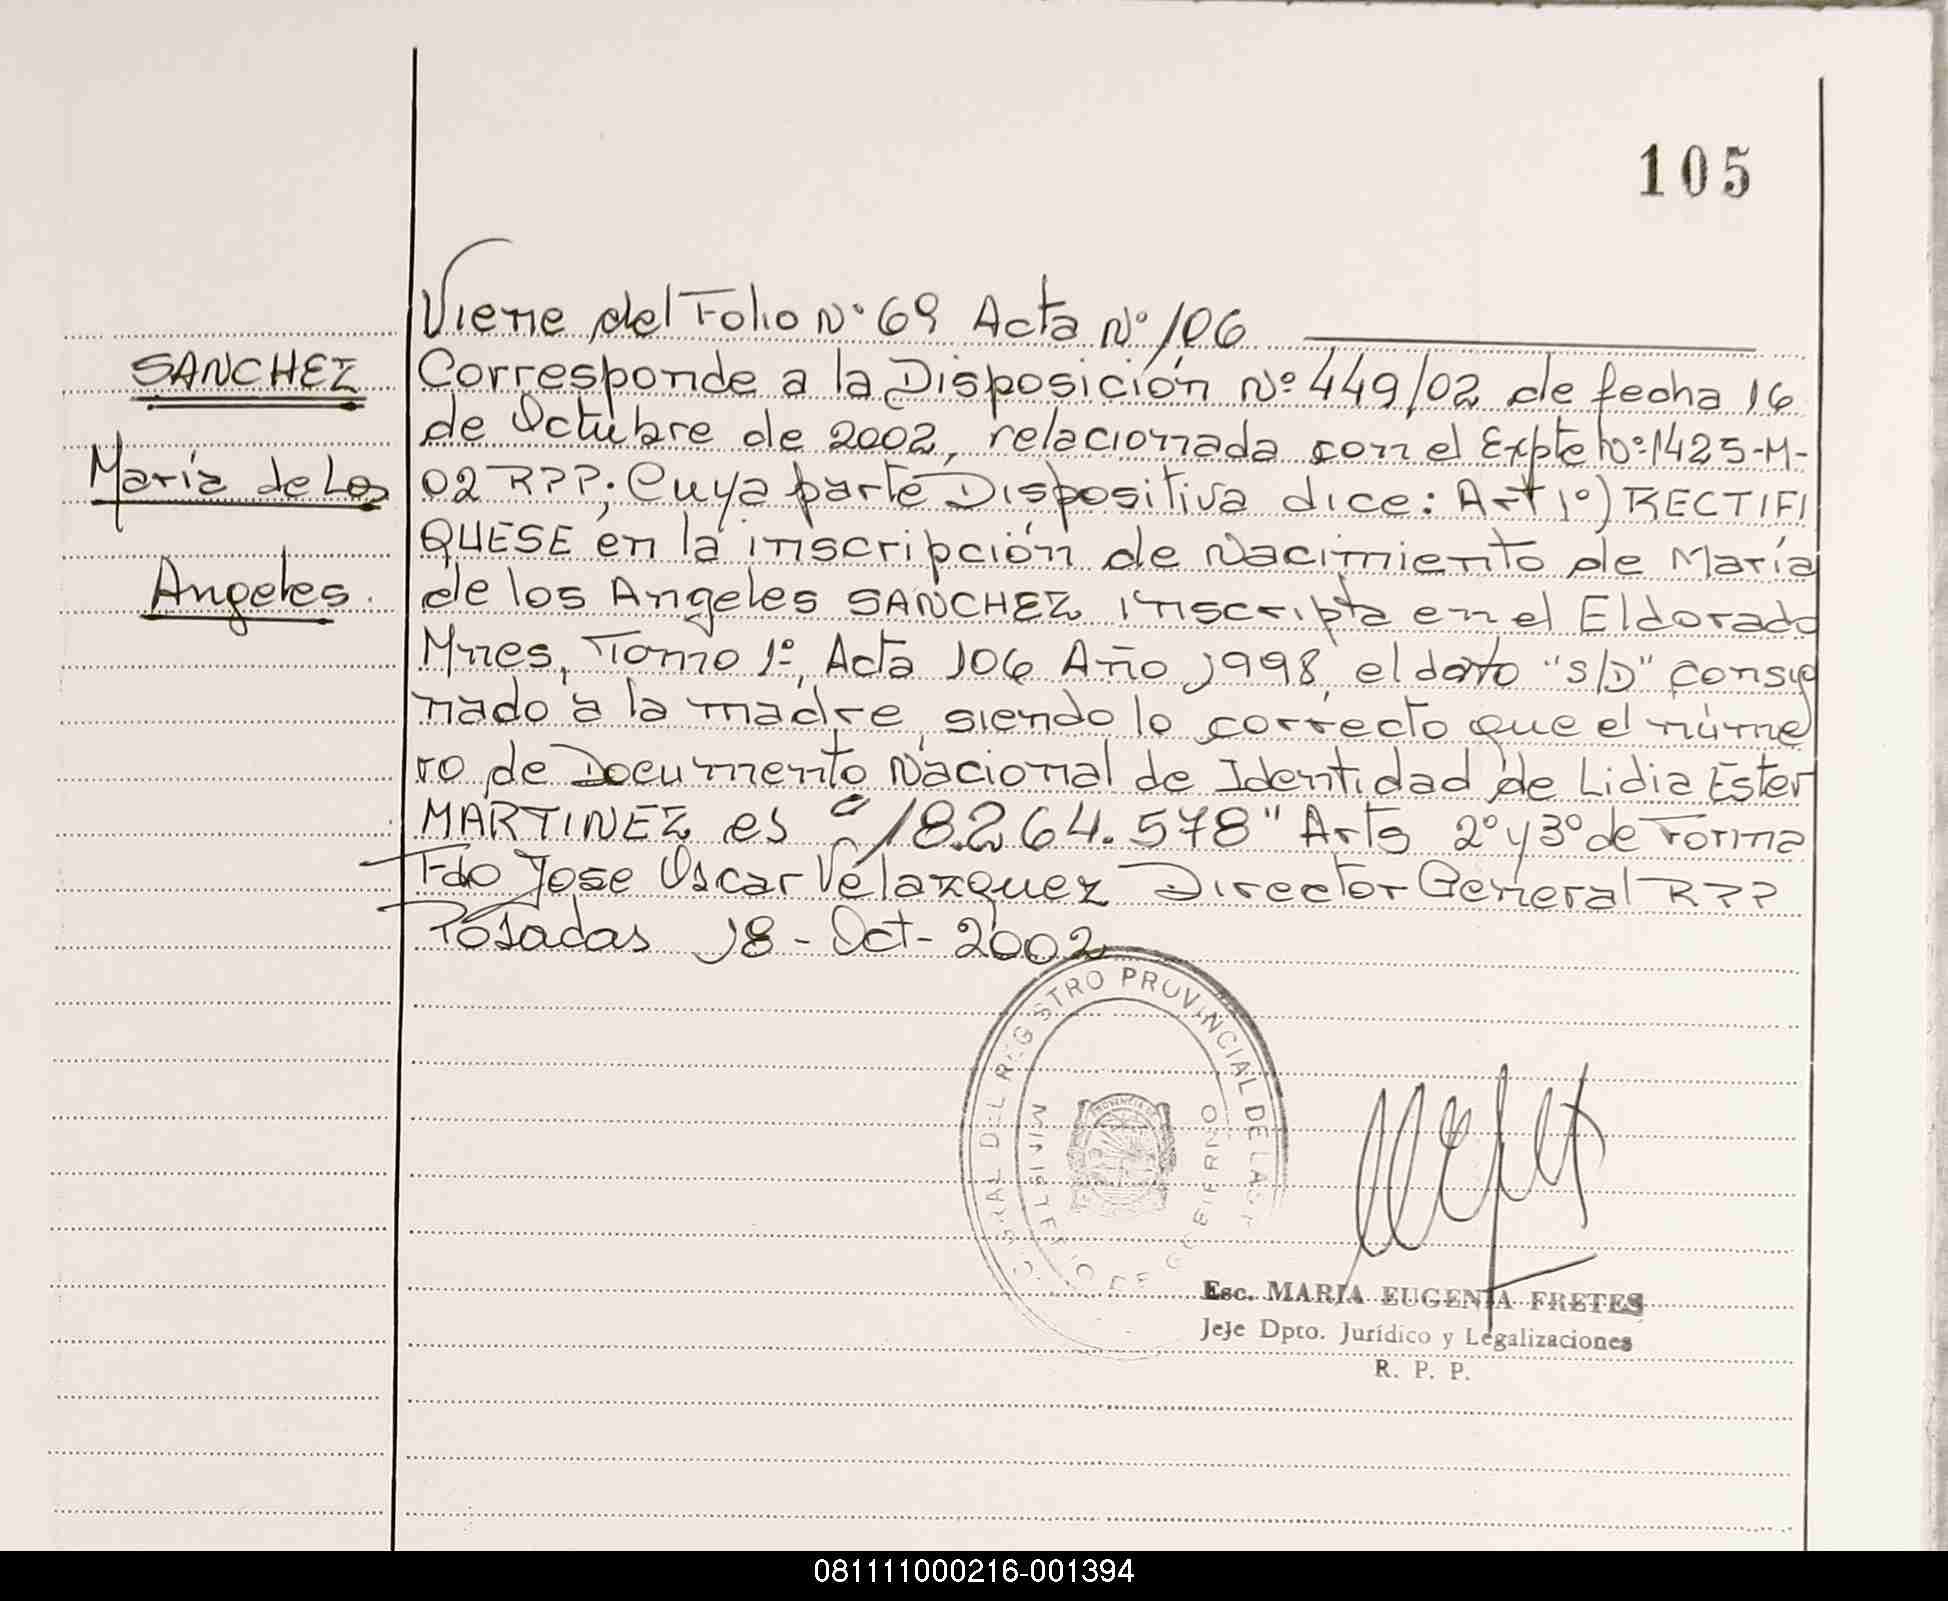 105
Viene del Folio Nº 69 Acta Nº 106
SANCHEZ
María de Los
Angeles.
Corresponde a la Disposición Nº 449/02 de fecha 16
de Octubre de 2002, relacionada con el Expte Nº 1425-M-
02 RPP; Cuya parte Dispositiva dice: Art 1º) RECTIFI
QUESE en la inscripción de Nacimiento de María
de los Angeles SANCHEZ inscripta en el Eldorado
Mnes, Tomo 1º, Acta 106 Año 1998, el dato "S/D" consig
nado a la madre, siendo lo correcto que el núme
ro de Documento Nacional de Identidad de Lidia Ester
MARTINEZ es "18.264.578" Arts 2º y 3º de Forma
Fdo Jose Oscar Velazquez Director General RPP
Posadas 18-Oct-2002
GRAL DEL REGISTRO PROVINCIAL DE LAS P
MINISTERIO DE GOBIERNO
PROVINCIA DE
Esc. MARIA EUGENIA FRETES
Jefe Dpto. Jurídico y Legalizaciones
R. P. P.
081111000216-001394